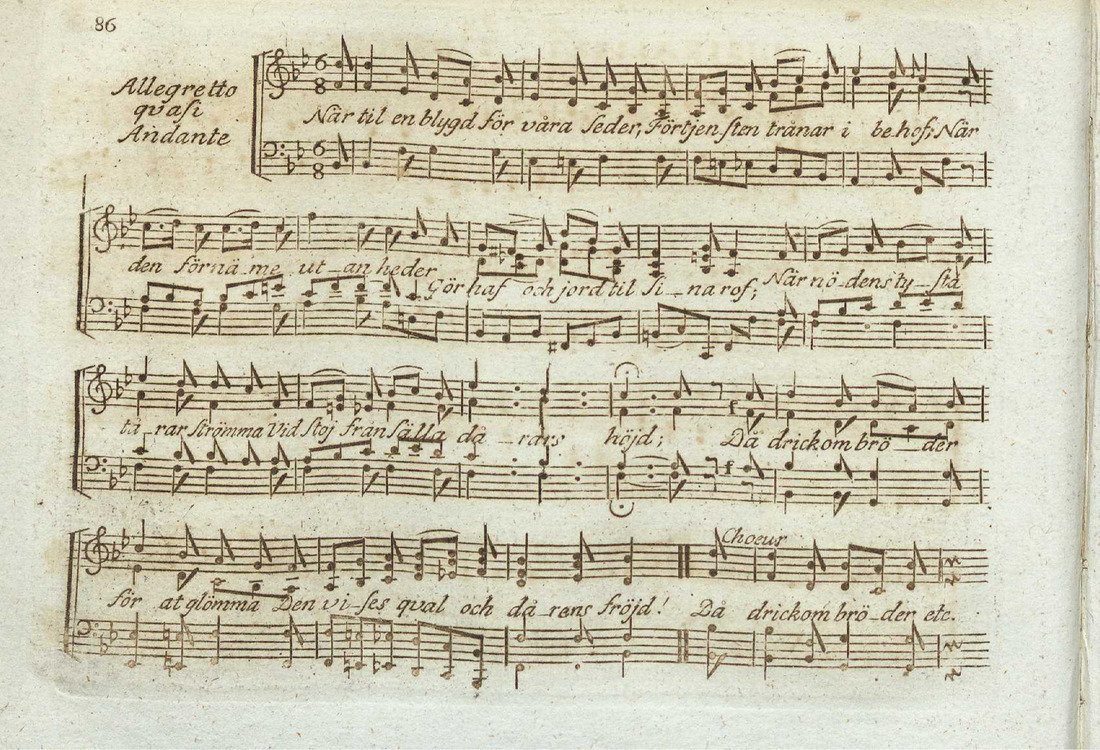 86
Allegretto
quasi
Andante
När til en blygd för våra seder, Förtjensten trånar i behof; När
den förnäme ut-an heder Gör haf och jord til si-na rof; När nö-dens ty-sta
tå-rar strömma Vid stoj från sälla då-rars höjd; Då drickom brö-der
för at glömma Den vi-ses qval och då rens fröjd! Då drickom brö-der etc.
Choeur